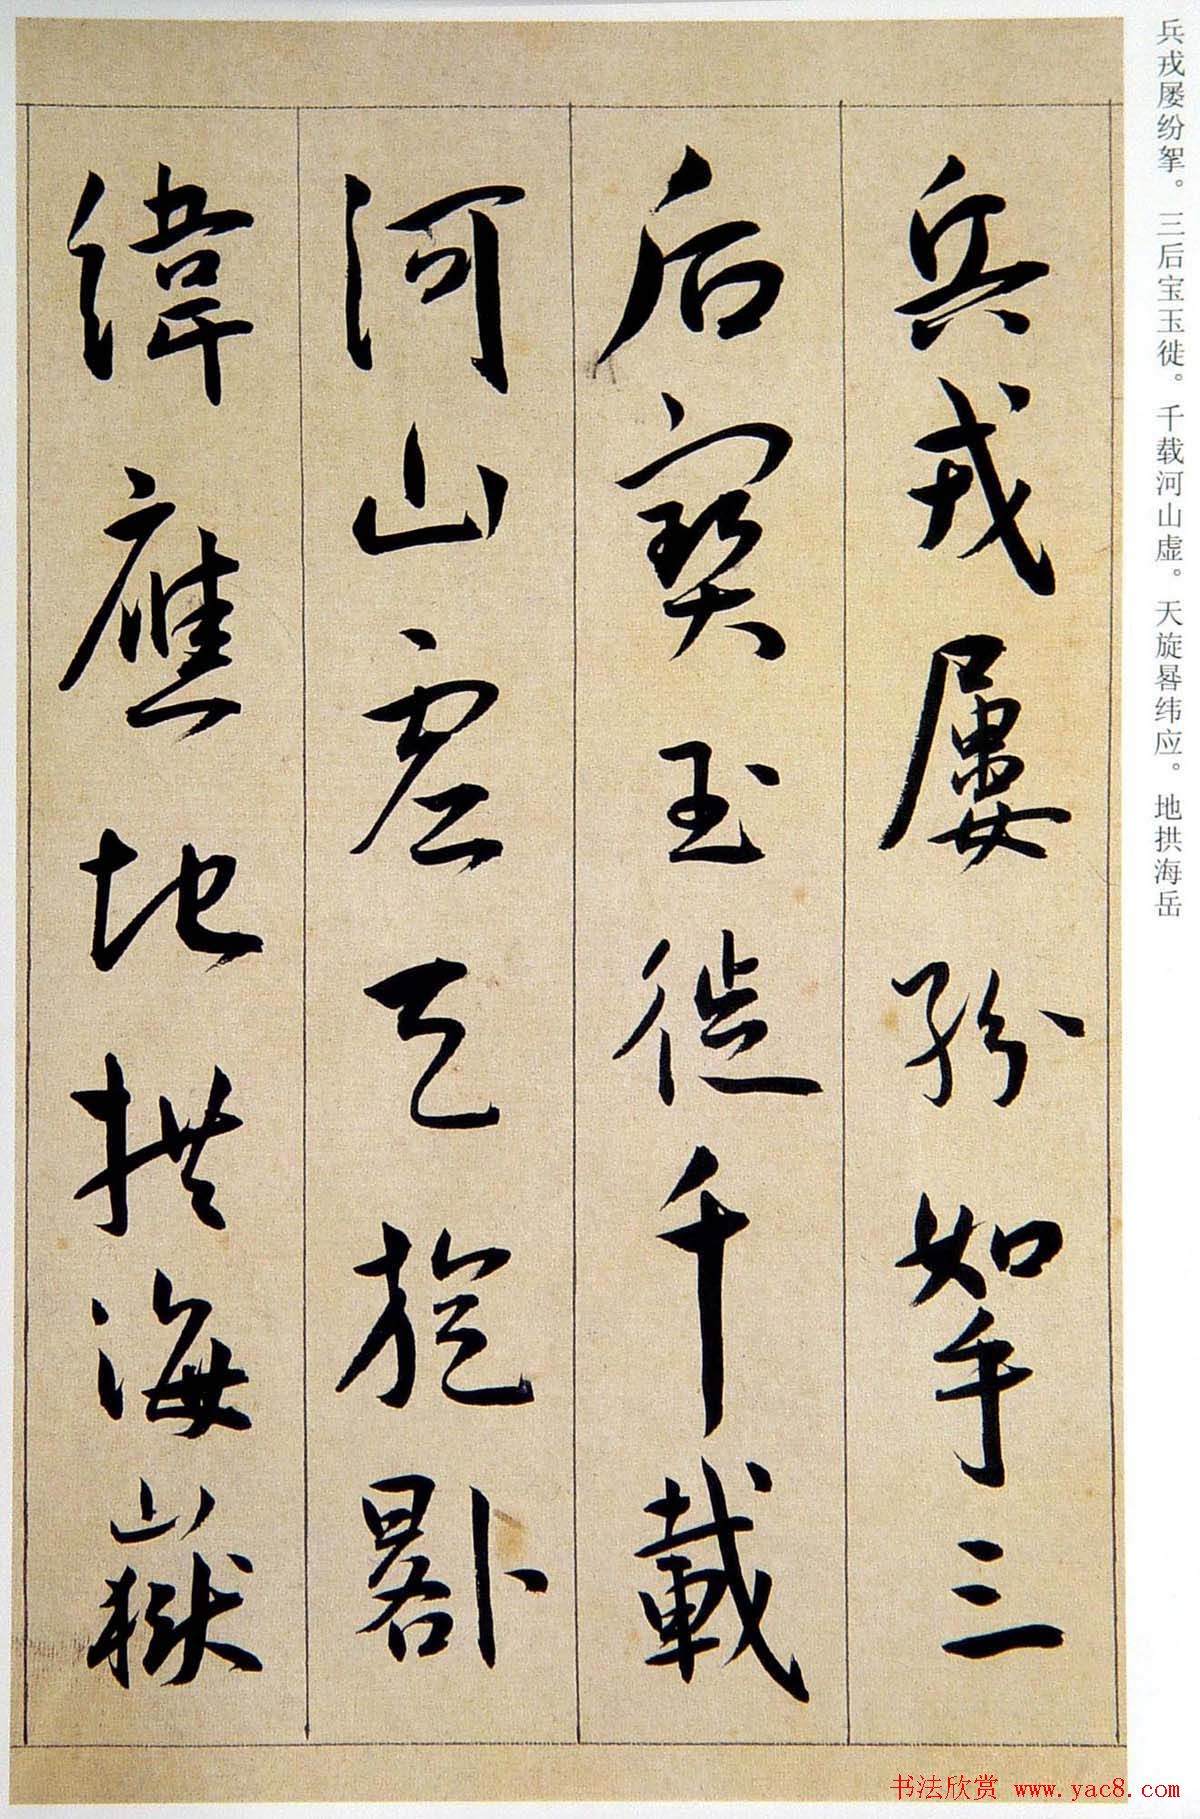 兵戎屡纷挐。三后宝玉徙。千载河山虚。天旋晷纬应。地拱海岳
兵戎屢紛挐三
后寶玉徙千載
河山虛天旋晷
緯應地拱海嶽
书法欣赏 www.yac8.com